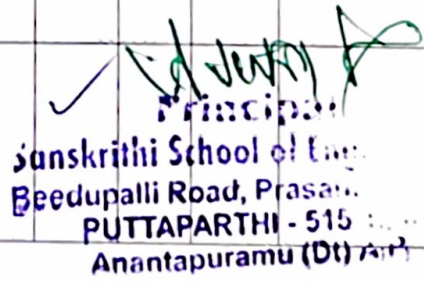 Principal
Sanskrithi School of
Beedupalli Road,
PUTTAPARTHI - 515
Anantapuramu (Dt)